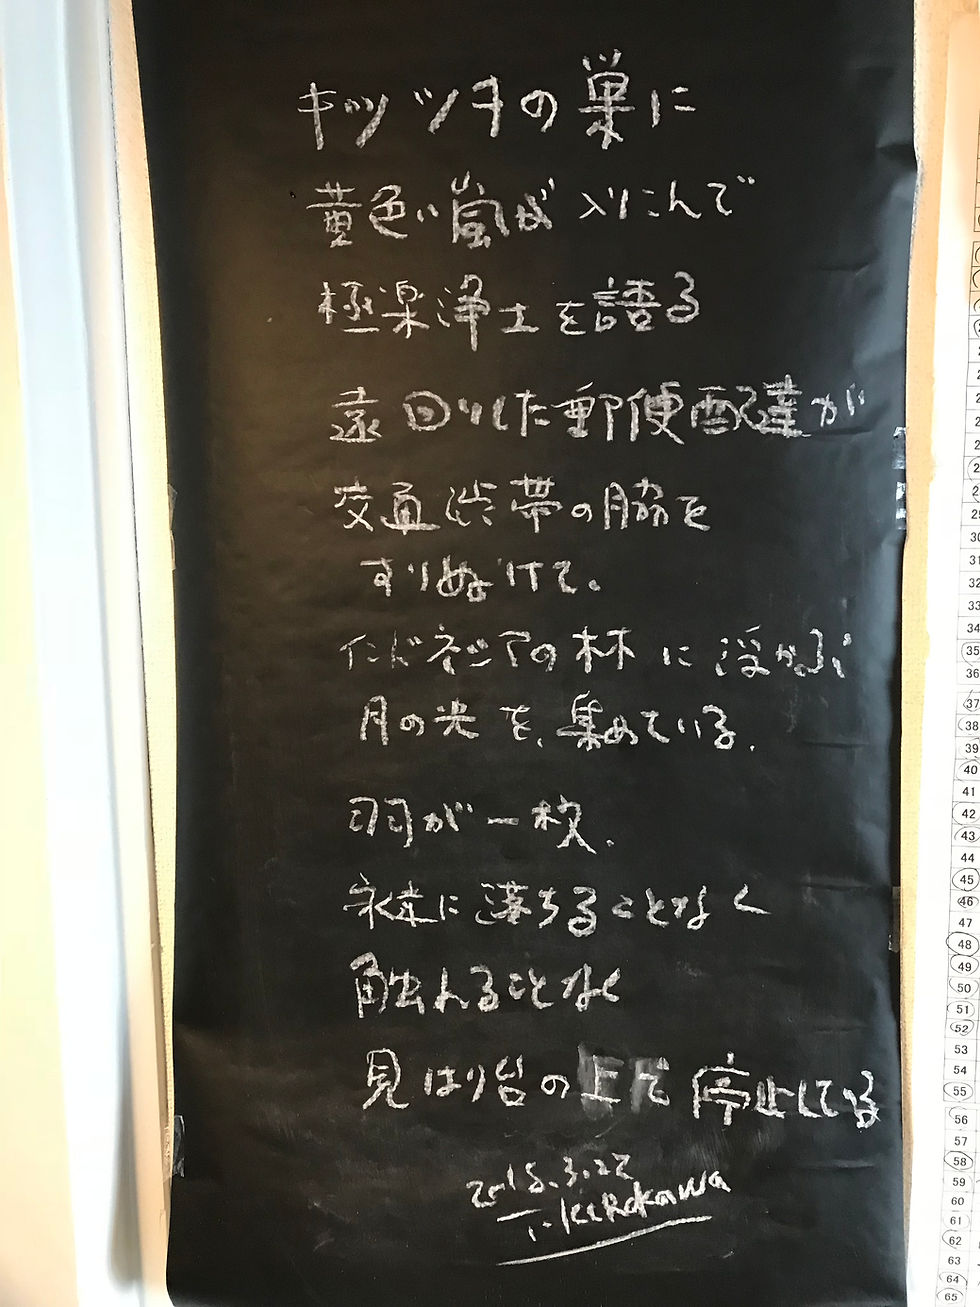 キツツキの巣に
黄色い嵐が入りこんで
極楽浄土を語る
遠回りした郵便配達が
交通渋帯の脇を
すりぬけて。
インドネシアの林に浮かぶ
月の光を、集めている.
羽が一枚.
永遠に落ちることなく
触れることなく
見はり台の上で停止している
2018.3.22
T.Kurokawa
29
30
31
32
33
34
35
36
37
38
39
40
41
42
43
44
45
46
47
48
49
50
51
52
53
54
55
56
57
58
59
60
61
62
63
64
65